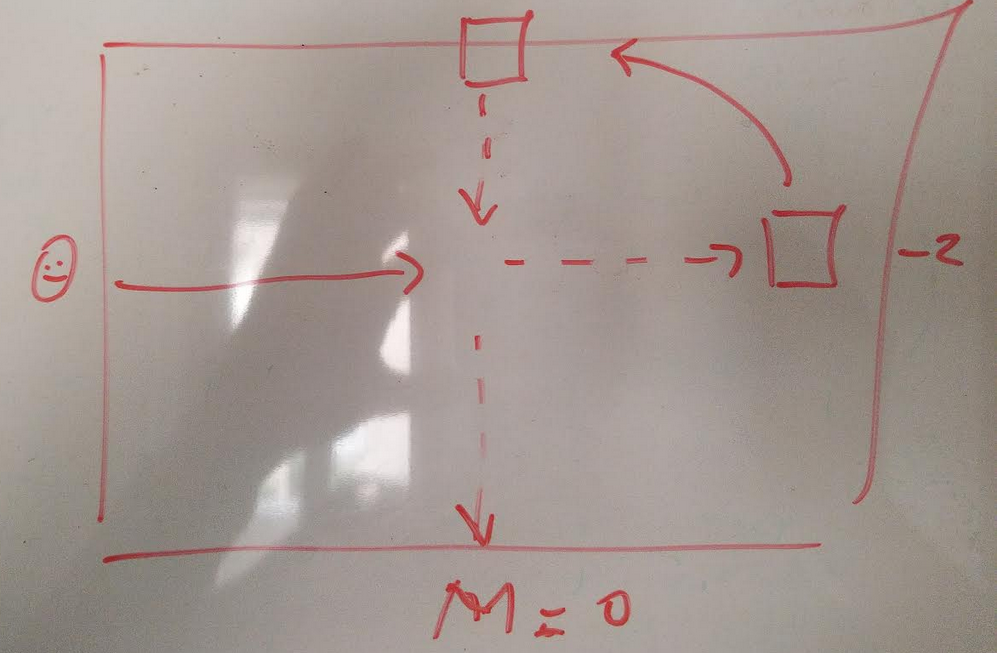 -2
M = 0